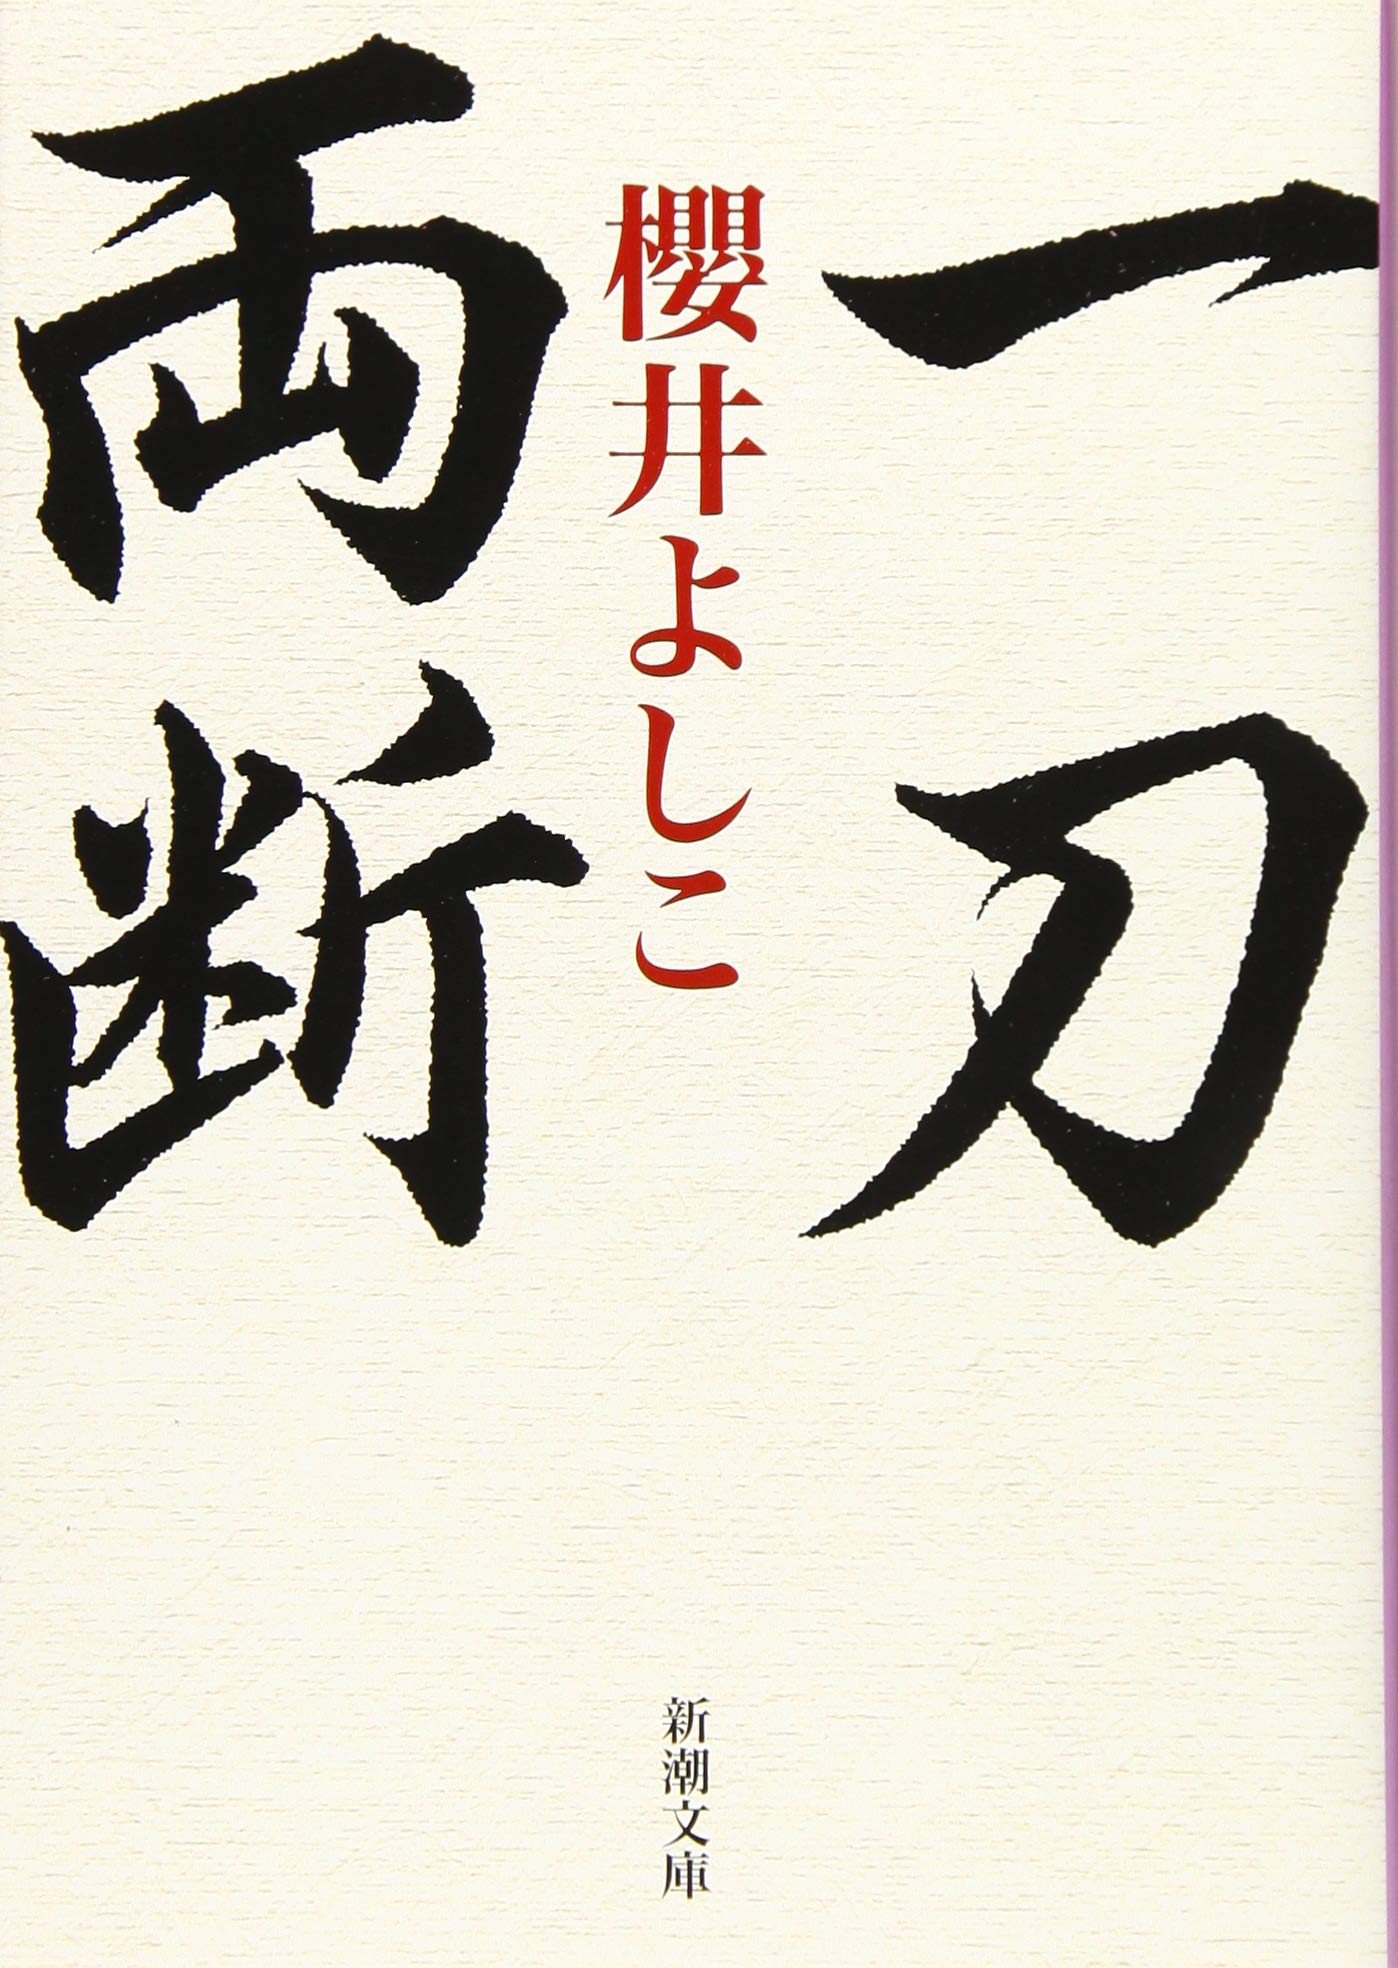 一刀
両断
櫻井よしこ
新潮文庫